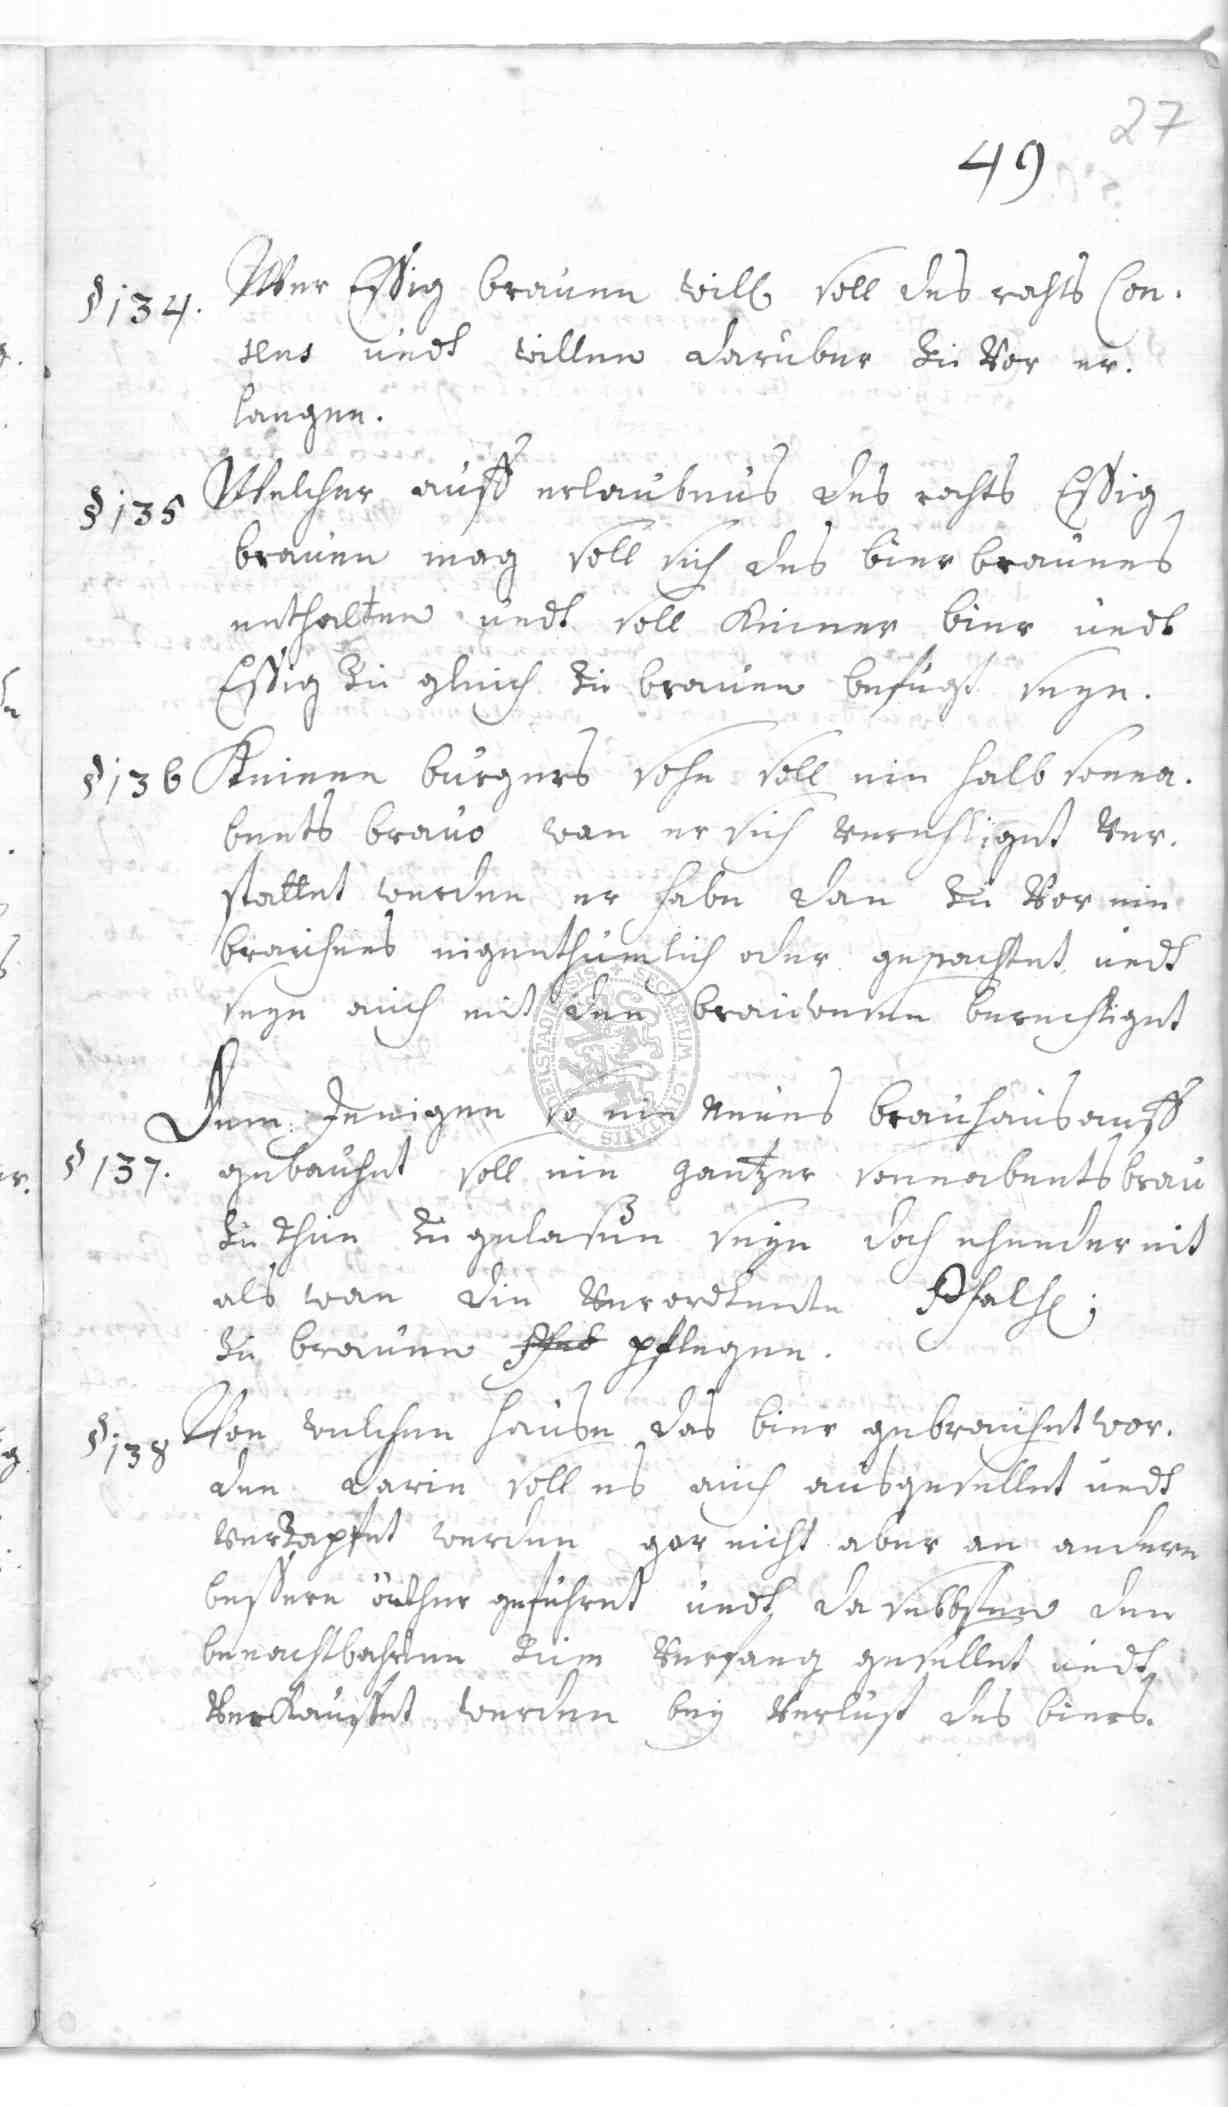 27
49
§ 134. Wer Essig brauen will soll des rahts Con-
sens undt willen daruber zu Vor er-
langen.
§ 135 Welcher auff erlaubnus des rahts Essig
brauen mag soll sich des bier brauens
enthalten undt soll Keiner bier undt
Essig zu gleich zu brauen befugt seyn.
§ 136 Keinen burgers sohn soll ein halb sonna-
bents brau wan er sich verehliget ver-
stattet werden er habe dan zu Vor ein
brauhues eigenthumlich oder gepachtet undt
seye auch mit den brauwesen berechtiget
Dem Jenigen so ein neues brauhaus auff
§ 137. gebauhet soll ein gantzer sonnabents brau
zu thun zu gelasen seyn doch ehender nit
als wan die Verordtente
zu brauen pflegen.
§ 138 Von welchen hause das bier gebrauhet wor-
den darin soll es auch ausgesellet undt
verzapfet werden gar nicht aber an andere
bessere örther geführet undt daselbsten den
benachtbahrten zum Verfang gesellet undt
Verkauffet werden bey Verlust des biers.
DUDERSTADIENSIS SECRETUM CIVITATIS